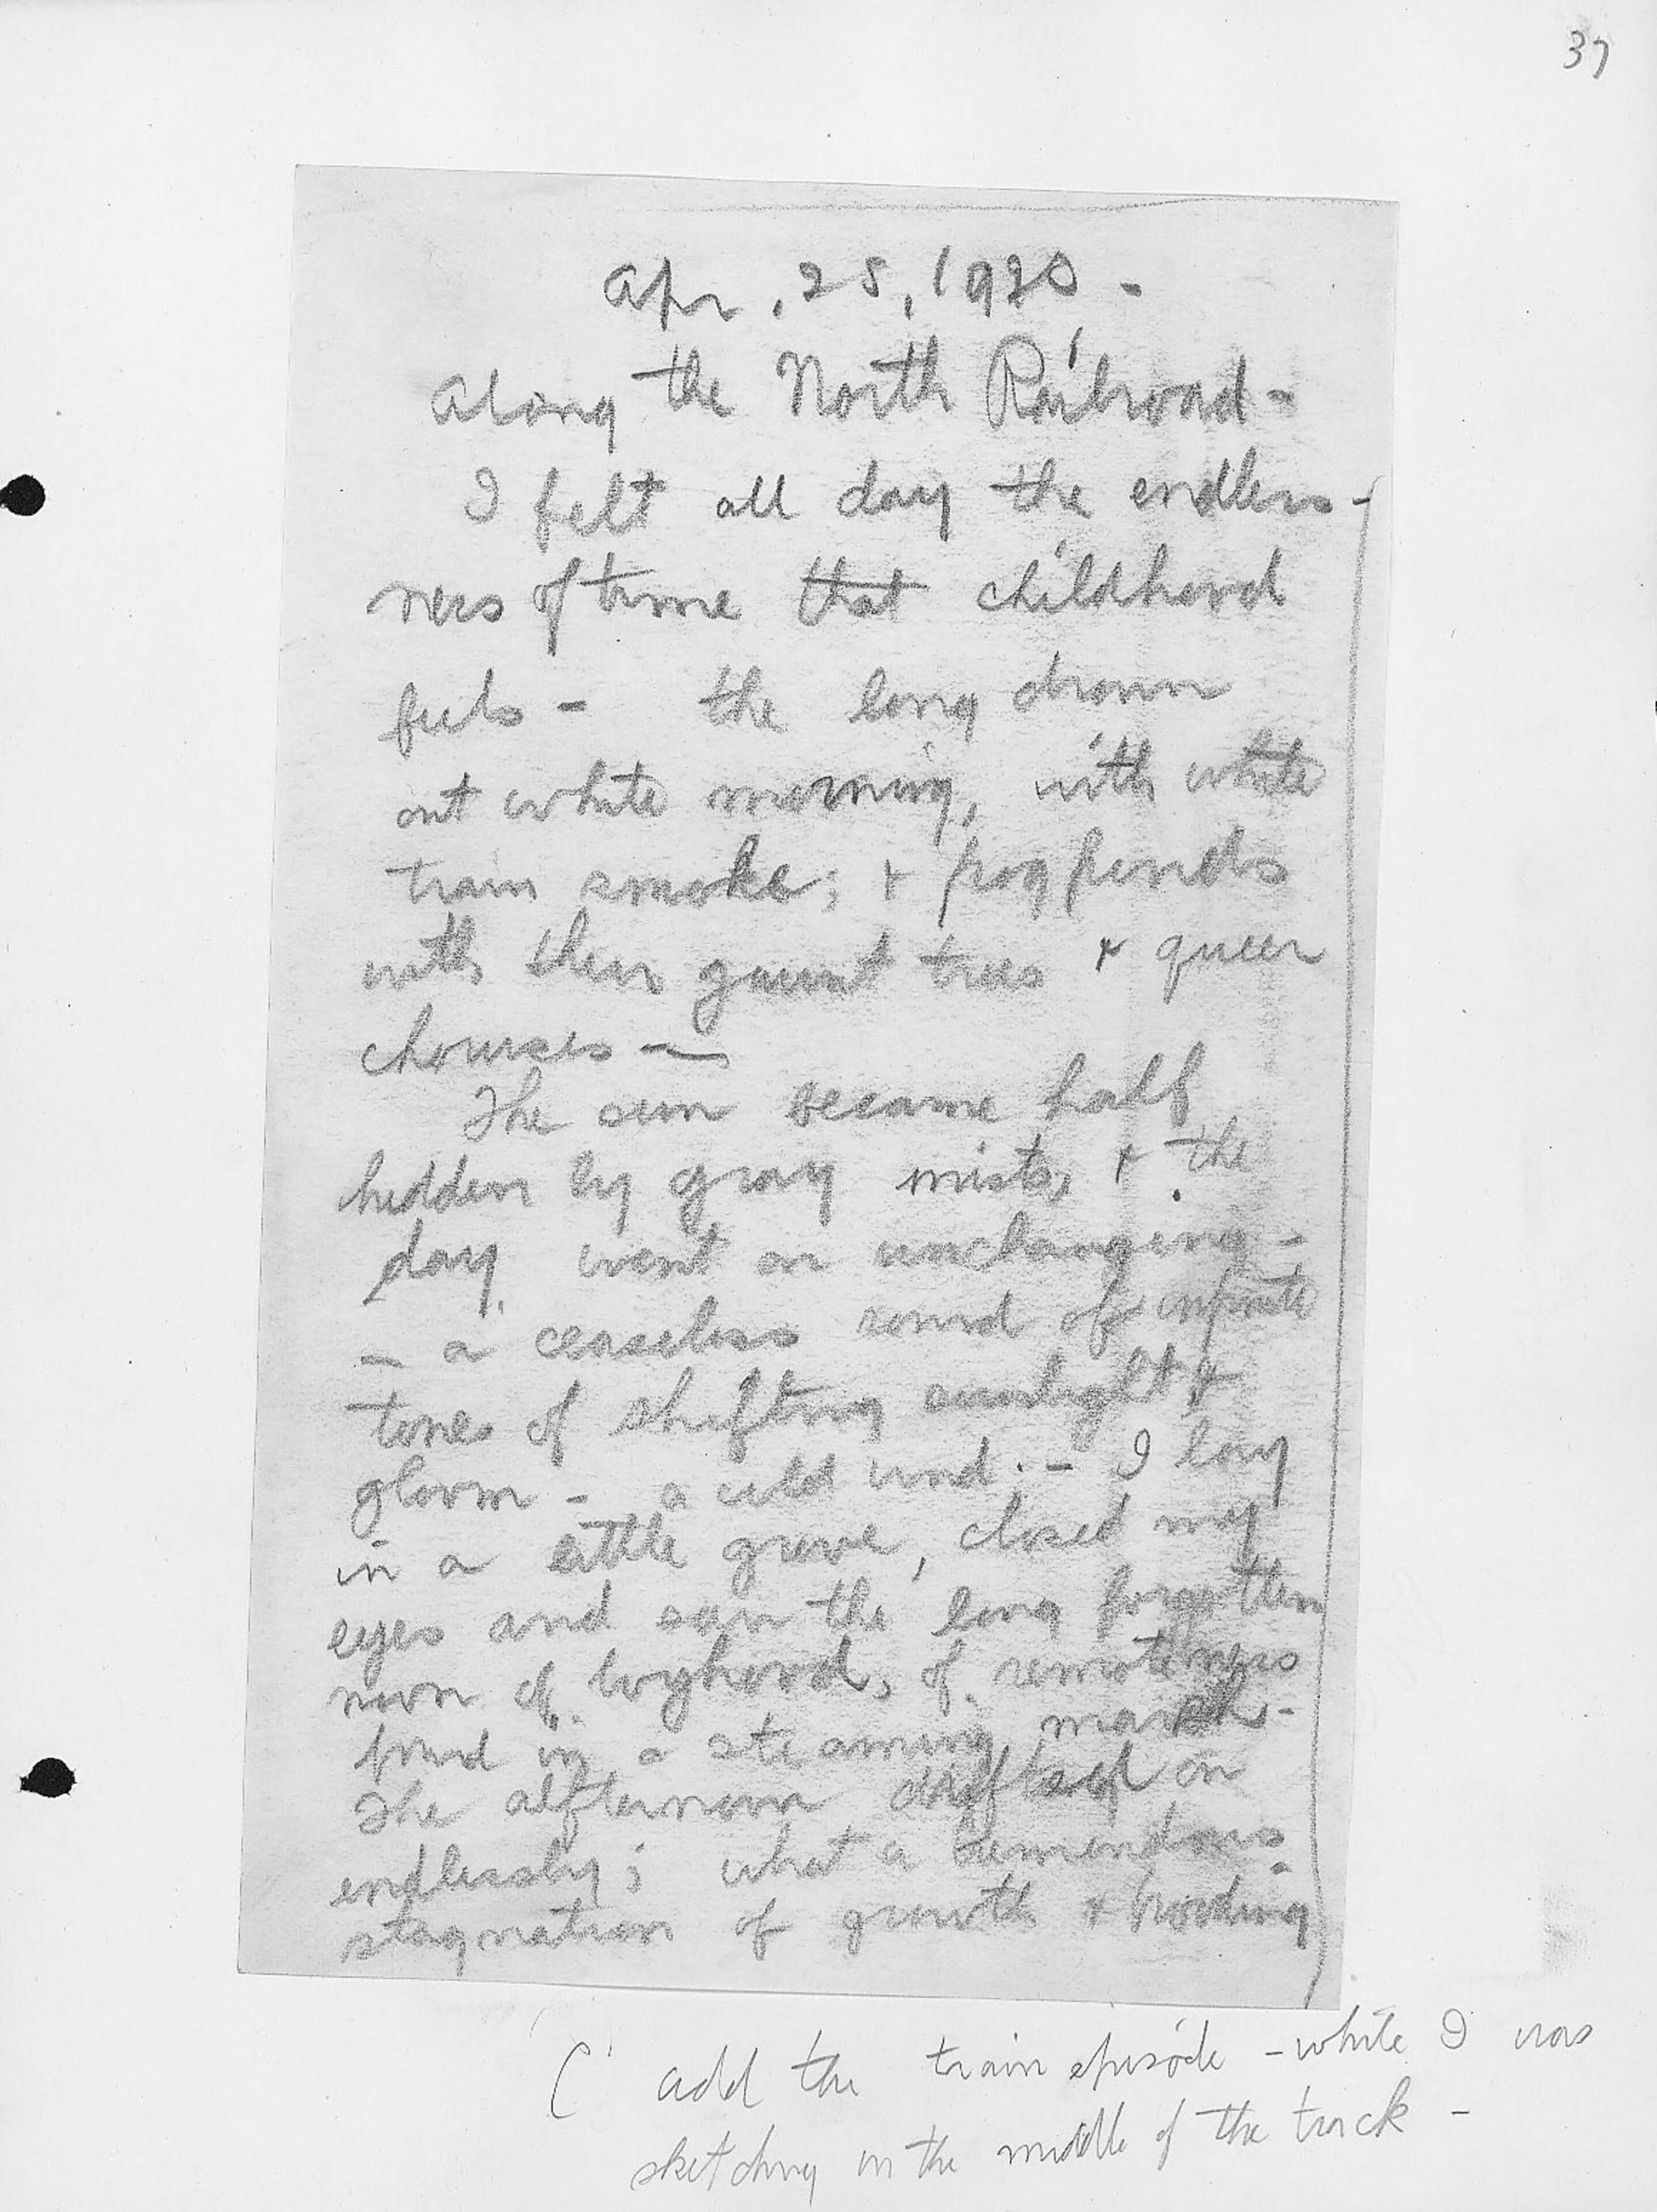 37
Apr. 25, 1920 -
Along the North Railroad -
I felt all day the endless-
ness of time that childhood
feels - the long drawn
out white morning, with white
train smoke; + frog ponds
with their gaunt trees + queer
chouses —
The sun became half
hidden by gray mists, + the
day went on unchanging -
- a ceaseless round of infinite
tones of shifting sunlight +
gloom - a cold wind. - I lay
in a little grove, closed my
eyes and saw the long forgotten
noon of boyhood, of remoteness
found in a steaming marsh -
The afternoon drifted on
endlessly; what a tremendous
stagnation of growth + brooding
( add the train episode - while I was
sketching in the middle of the track -